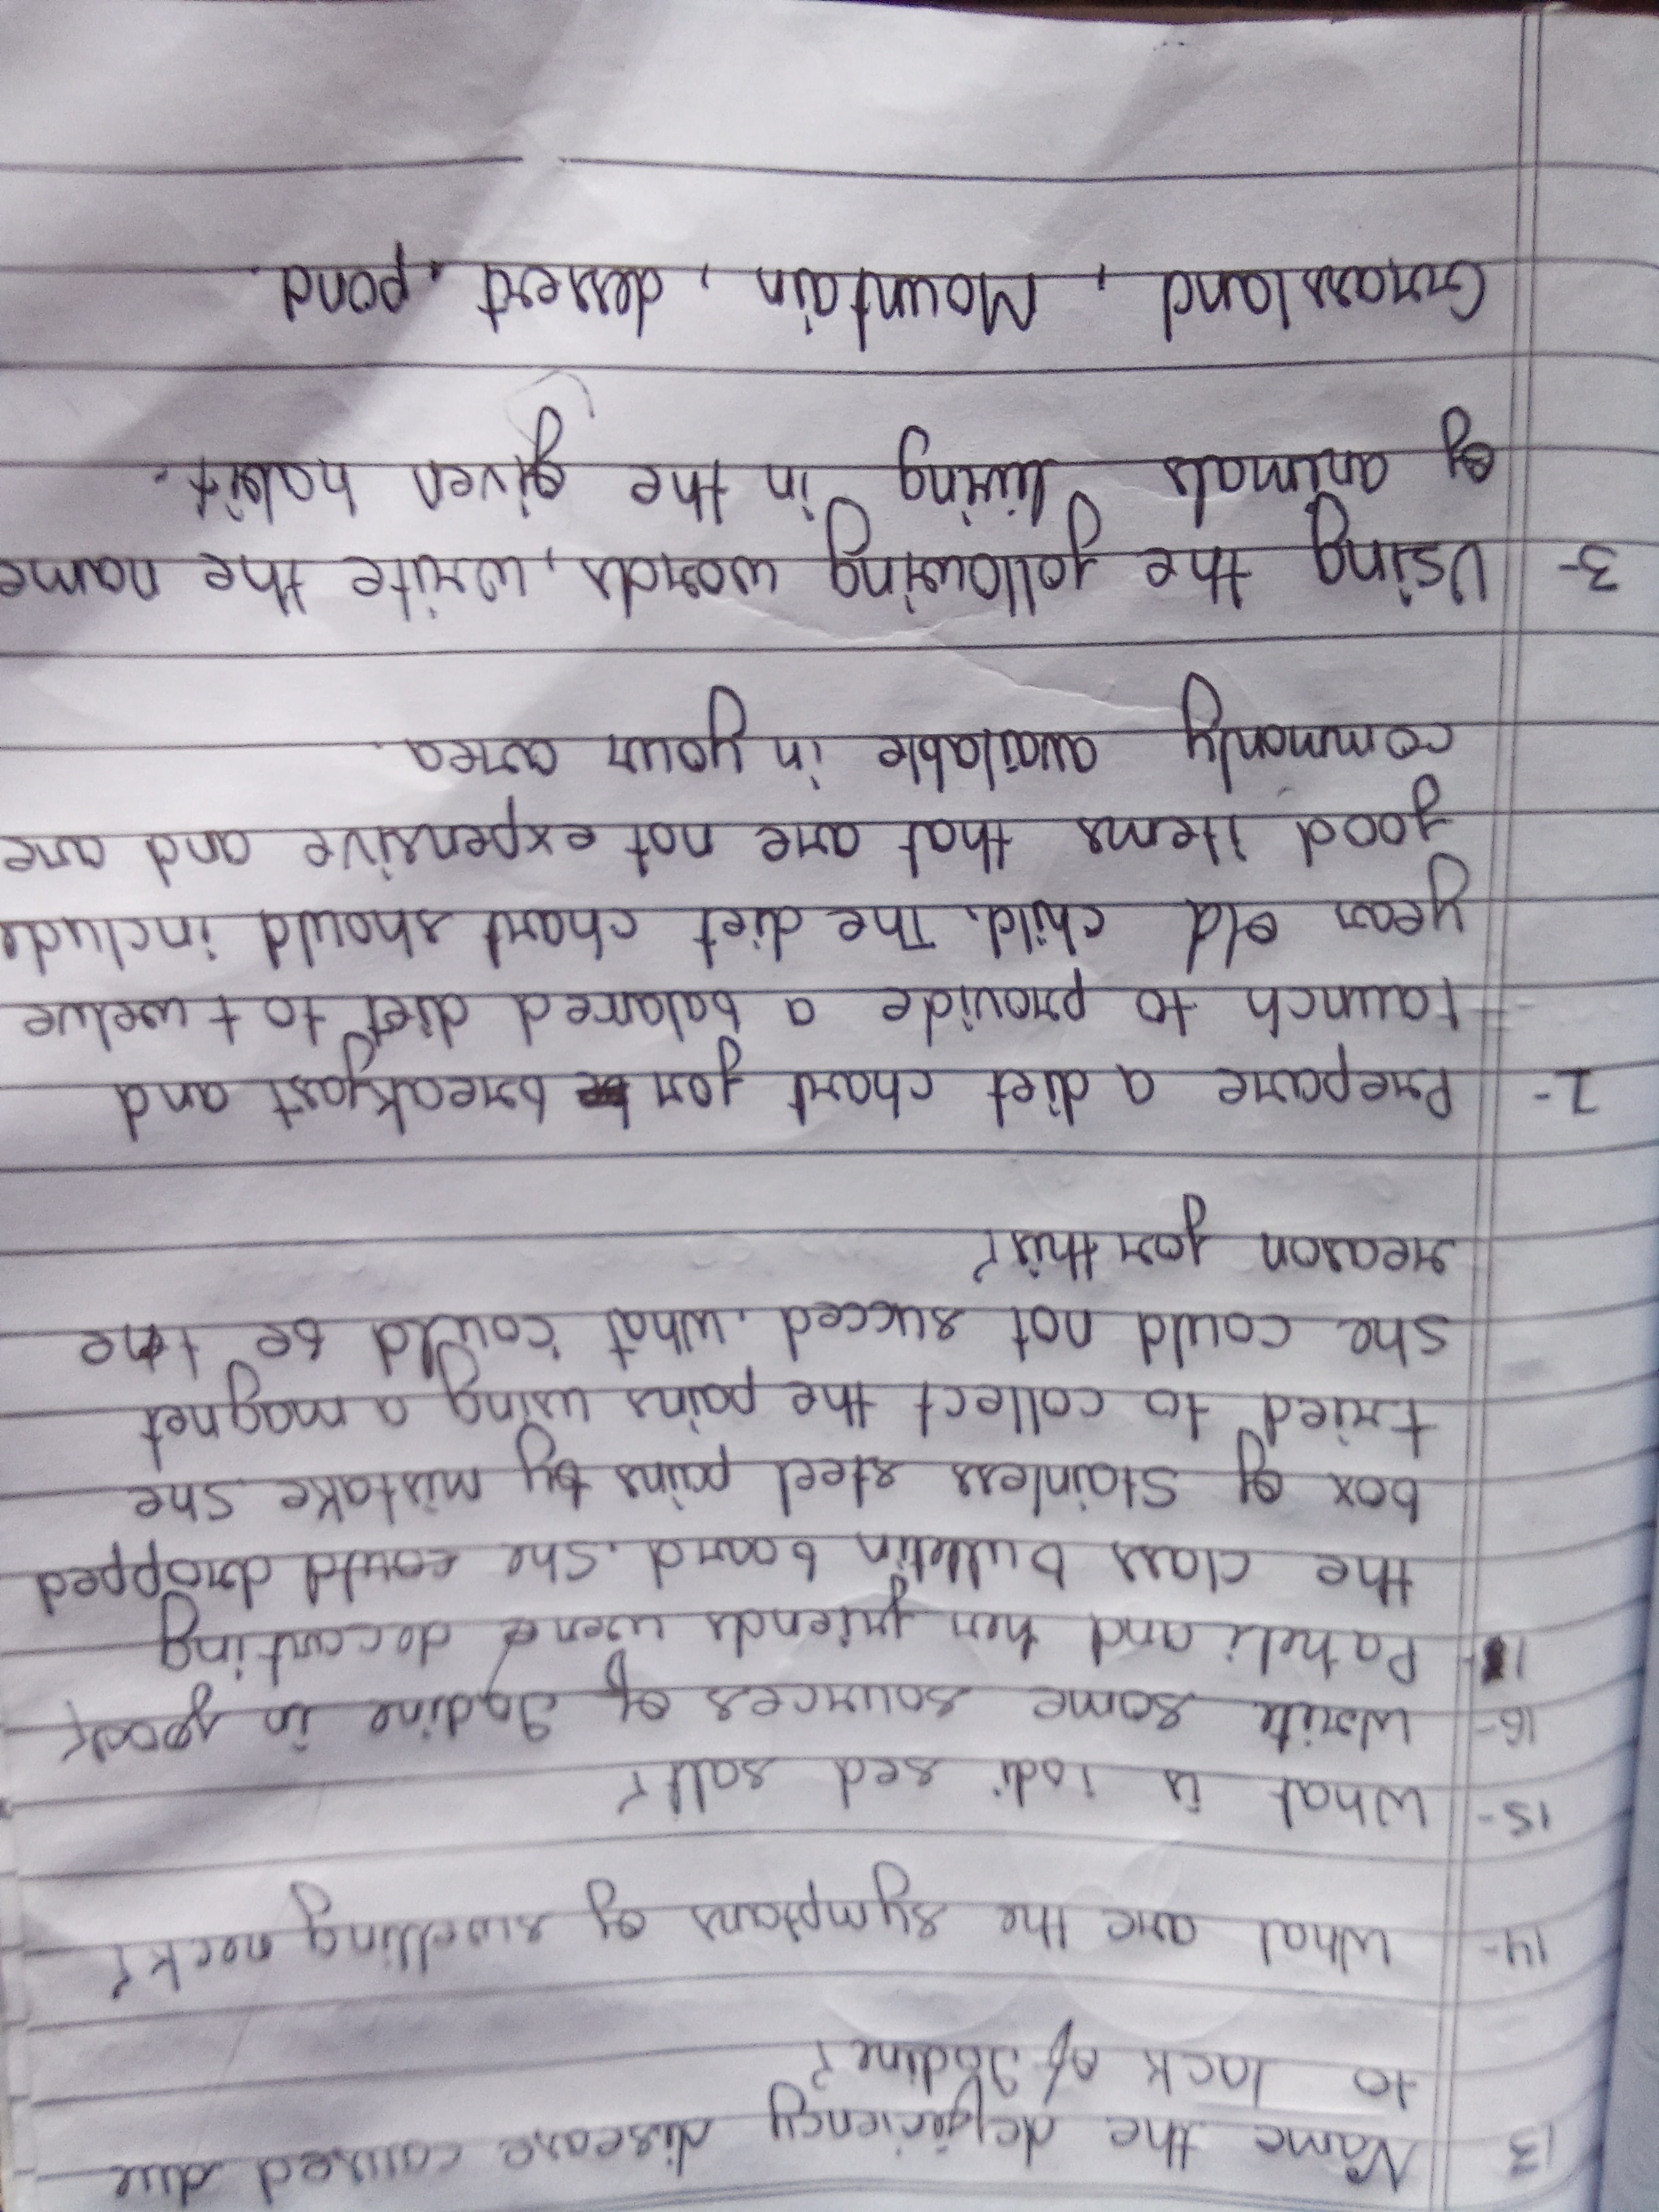 13 Name the deficiency disease caused due
to lack of Iodine?
14- What are the symptans of swelling neck?
15- What is iodi sed salt?
16- Write some sources of Iodine in food?
1- Paheli and her friends were decorting
the class bulletin board. She could dropped
box of stainless steel pains by mistake. She
tried to collect the pains using a magnet
She could not succed. What could be the
reason for this?
2- Prepare a diet chart for breakfast and
launch to provide a balanced diet to twelve
year old child. The diet chart should include
food items that are not expensive and are
commonly available in your area.
3- Using the following words, write the name
of animals living in the given habit.
Grassland, Mountain, dessert, pond.